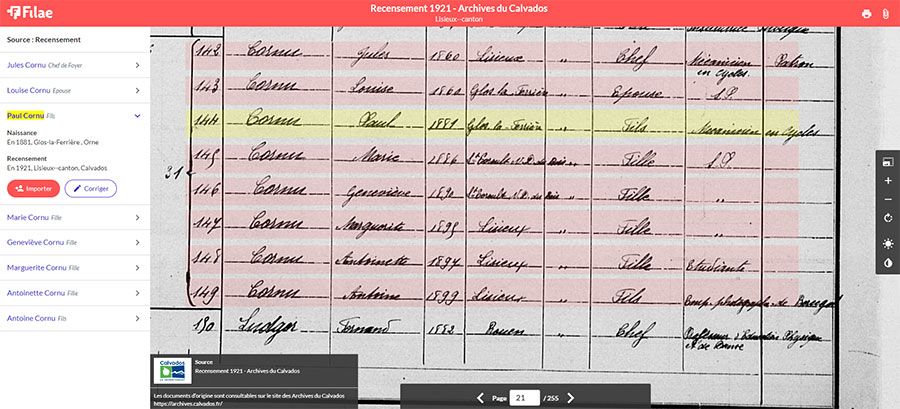 Filae
Recensement 1921 - Archives du Calvados
Lisieux--canton
Source : Recensement
Jules Cornu Chef de Foyer
Louise Cornu Epouse
Paul Cornu Fils
Naissance
En 1881, Glos-la-Ferrière , Orne
Recensement
En 1921, Lisieux--canton, Calvados
Importer
Corriger
Marie Cornu Fille
Geneviève Cornu Fille
Marguerite Cornu Fille
Antoinette Cornu Fille
Antoine Cornu Fils
31
142 Cornu Jules 1860 Lisieux " Chef Mécanicien en cycles Patron
143 Cornu Louise 1860 Glos la Ferrière " Epouse S.P.
144 Cornu Paul 1881 Glos la Ferrière " Fils Mécanicien en cycles
145 Cornu Marie 1886 " Fille S.P.
146 Cornu Geneviève 1890 " Fille "
147 Cornu Marguerite 1895 Lisieux " Fille "
148 Cornu Antoinette 1897 Lisieux " Fille Etudiante
149 Cornu Antoine 1899 Lisieux " Fils
150 Ludger Fernand 1882 Rouen " Chef Professeur d'Education Physique et de Danse
Calvados
Source
Recensement 1921 - Archives du Calvados
Les documents d'origine sont consultables sur le site des Archives du Calvados
https://archives.calvados.fr/
Page 21 / 255